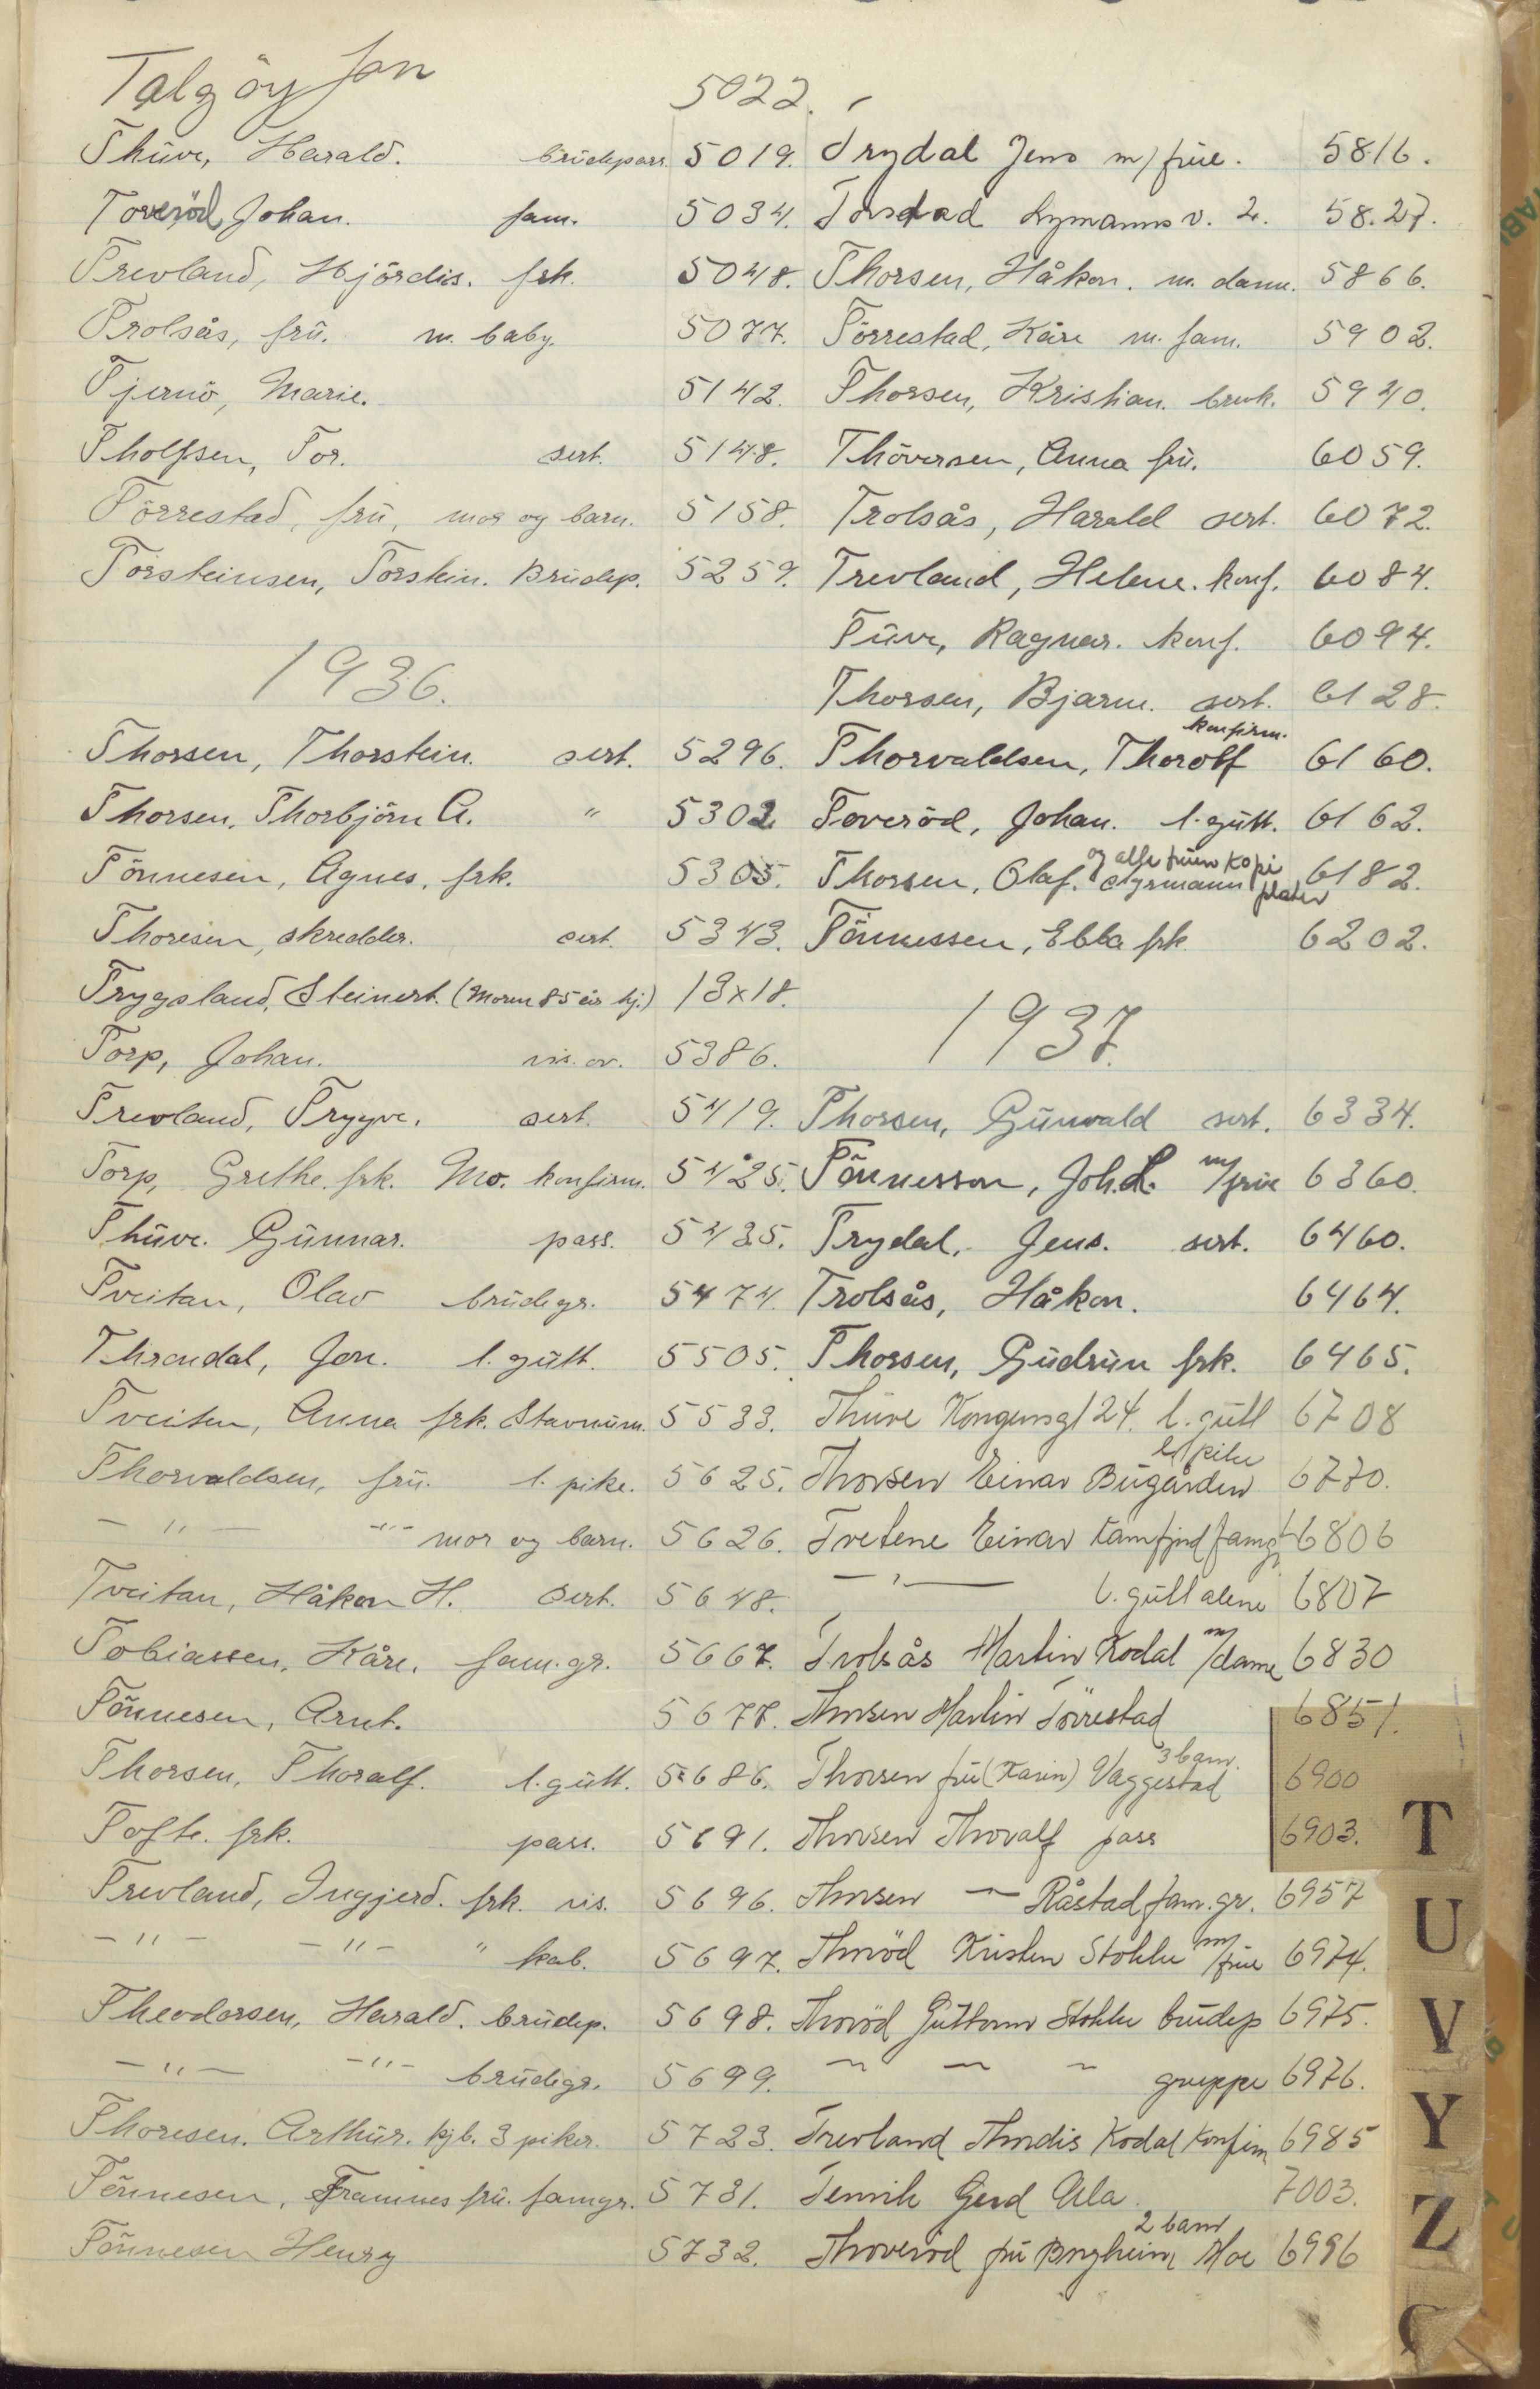 Talgöy Jon 5022.
Thüve, Harald. brüdepass. 5019.
Toveröd Johan. fam. 5034.
Trevland, Hjördis. frk. 5048.
Trolsås, frü. m. baby. 5077.
Tjernö, Marie. 5142.
Tholfsen, Tor. sert. 5148.
Törrestad, frü, mor og barn. 5158.
Torsteinsen, Torstein. Brüdep. 5259.
1936.
Thorsen, Thorstein. sert. 5296.
Thorsen, Thorbjörn A. " 5302
Tönnesen, Agnes, frk. 5305.
Thoresen, skredder. sert. 5343.
Trygsland, Steinert. (Moren 85 år hj.) 13x18.
Torp, Johan. vis. ov. 5386.
Trevland, Trygve. sert. 5419.
Torp, Grethe. frk. Mo. konfirm. 5425.
Thüve. Günnar. pass. 5435.
Tveitan, Olav brüdegr. 5474.
Throndal, Jon. l. gütt. 5505.
Tveiten, Anna frk. Stavnüm. 5533.
Thorvaldsen, frü. l. pike. 5625.
- " - -"- mor og barn. 5626.
Tveitan, Håkon H. sert. 5648.
Tobiassen, Kåre. fam. gr. 5667.
Tönnesen, Arnt. 5677.
Thorsen, Thoralf. l. gütt. 5686.
Tofte. frk. pass. 5691.
Trevland, Ingjerd. frk. vis. 5696.
- " - - " - " kab. 5697.
Theodorsen, Harald. brüdep. 5698.
- " - - " - brüdegr. 5699.
Thoresen. Arthür. kjb. 3 piker. 5723.
Tönnesen, Framnes frü. famgr. 5731.
Tönnesen Henry 5732.
Trydal Jens m/ früe. 5816.
Torstad v. 2. 5827.
Thorsen, Håkon. m. dame. 5866.
Törrestad, Kåre m. fam. 5902.
Thorsen, Kristian. brük. 5940.
Thöversen, Anna frü. 6059.
Trolsås, Harald sert. 6072.
Trevland, Helene. konf. 6084.
Tüve, Ragnar. konf. 6094.
Thorsen, Bjarne. sert. 6128.
konfirm.
Thorvaldsen, Thorolf 6160.
Toveröd, Johan. l. gütt. 6162.
Thorsen, Olaf. og kopi plater 6182.
Tönnessen, Ebba frk. 6202.
1937.
Thorsen, Günvald sert. 6334.
Tönnesson, Joh. L. m/früe 6360.
Trydal, Jens. sert. 6460.
Trolsås, Håkon. 6464.
Thorsen, Güdrün frk. 6465.
Thüve Kongensgt 24. l. gütt 6708
l. pike
Thorsen Einar Bügården 6770.
Tvetene Einar famgr 6806
- " - l. gütt alene 6807
Trolsås Martin Kodal m/dame 6830
Thorsen Martin Törrestad 6851.
3 barn.
Thorsen frü (Karin) Vaggestad 6900
Thorsen Thoralf pass 6903.
Thorsen - Råstad fam. gr. 6957
Thoröd Kristen Stokke m/früe 6974.
Thoröd Güttorm Stokke brüdep 6975.
~ ~ ~ gruppe 6976.
Trevland Thordis Kodal Konfirm 6985
Tenvik Gerd Ula. 7003.
2 barn
Thoveröd frü Borgheim Moe 6996
T
U
V
Y
Z